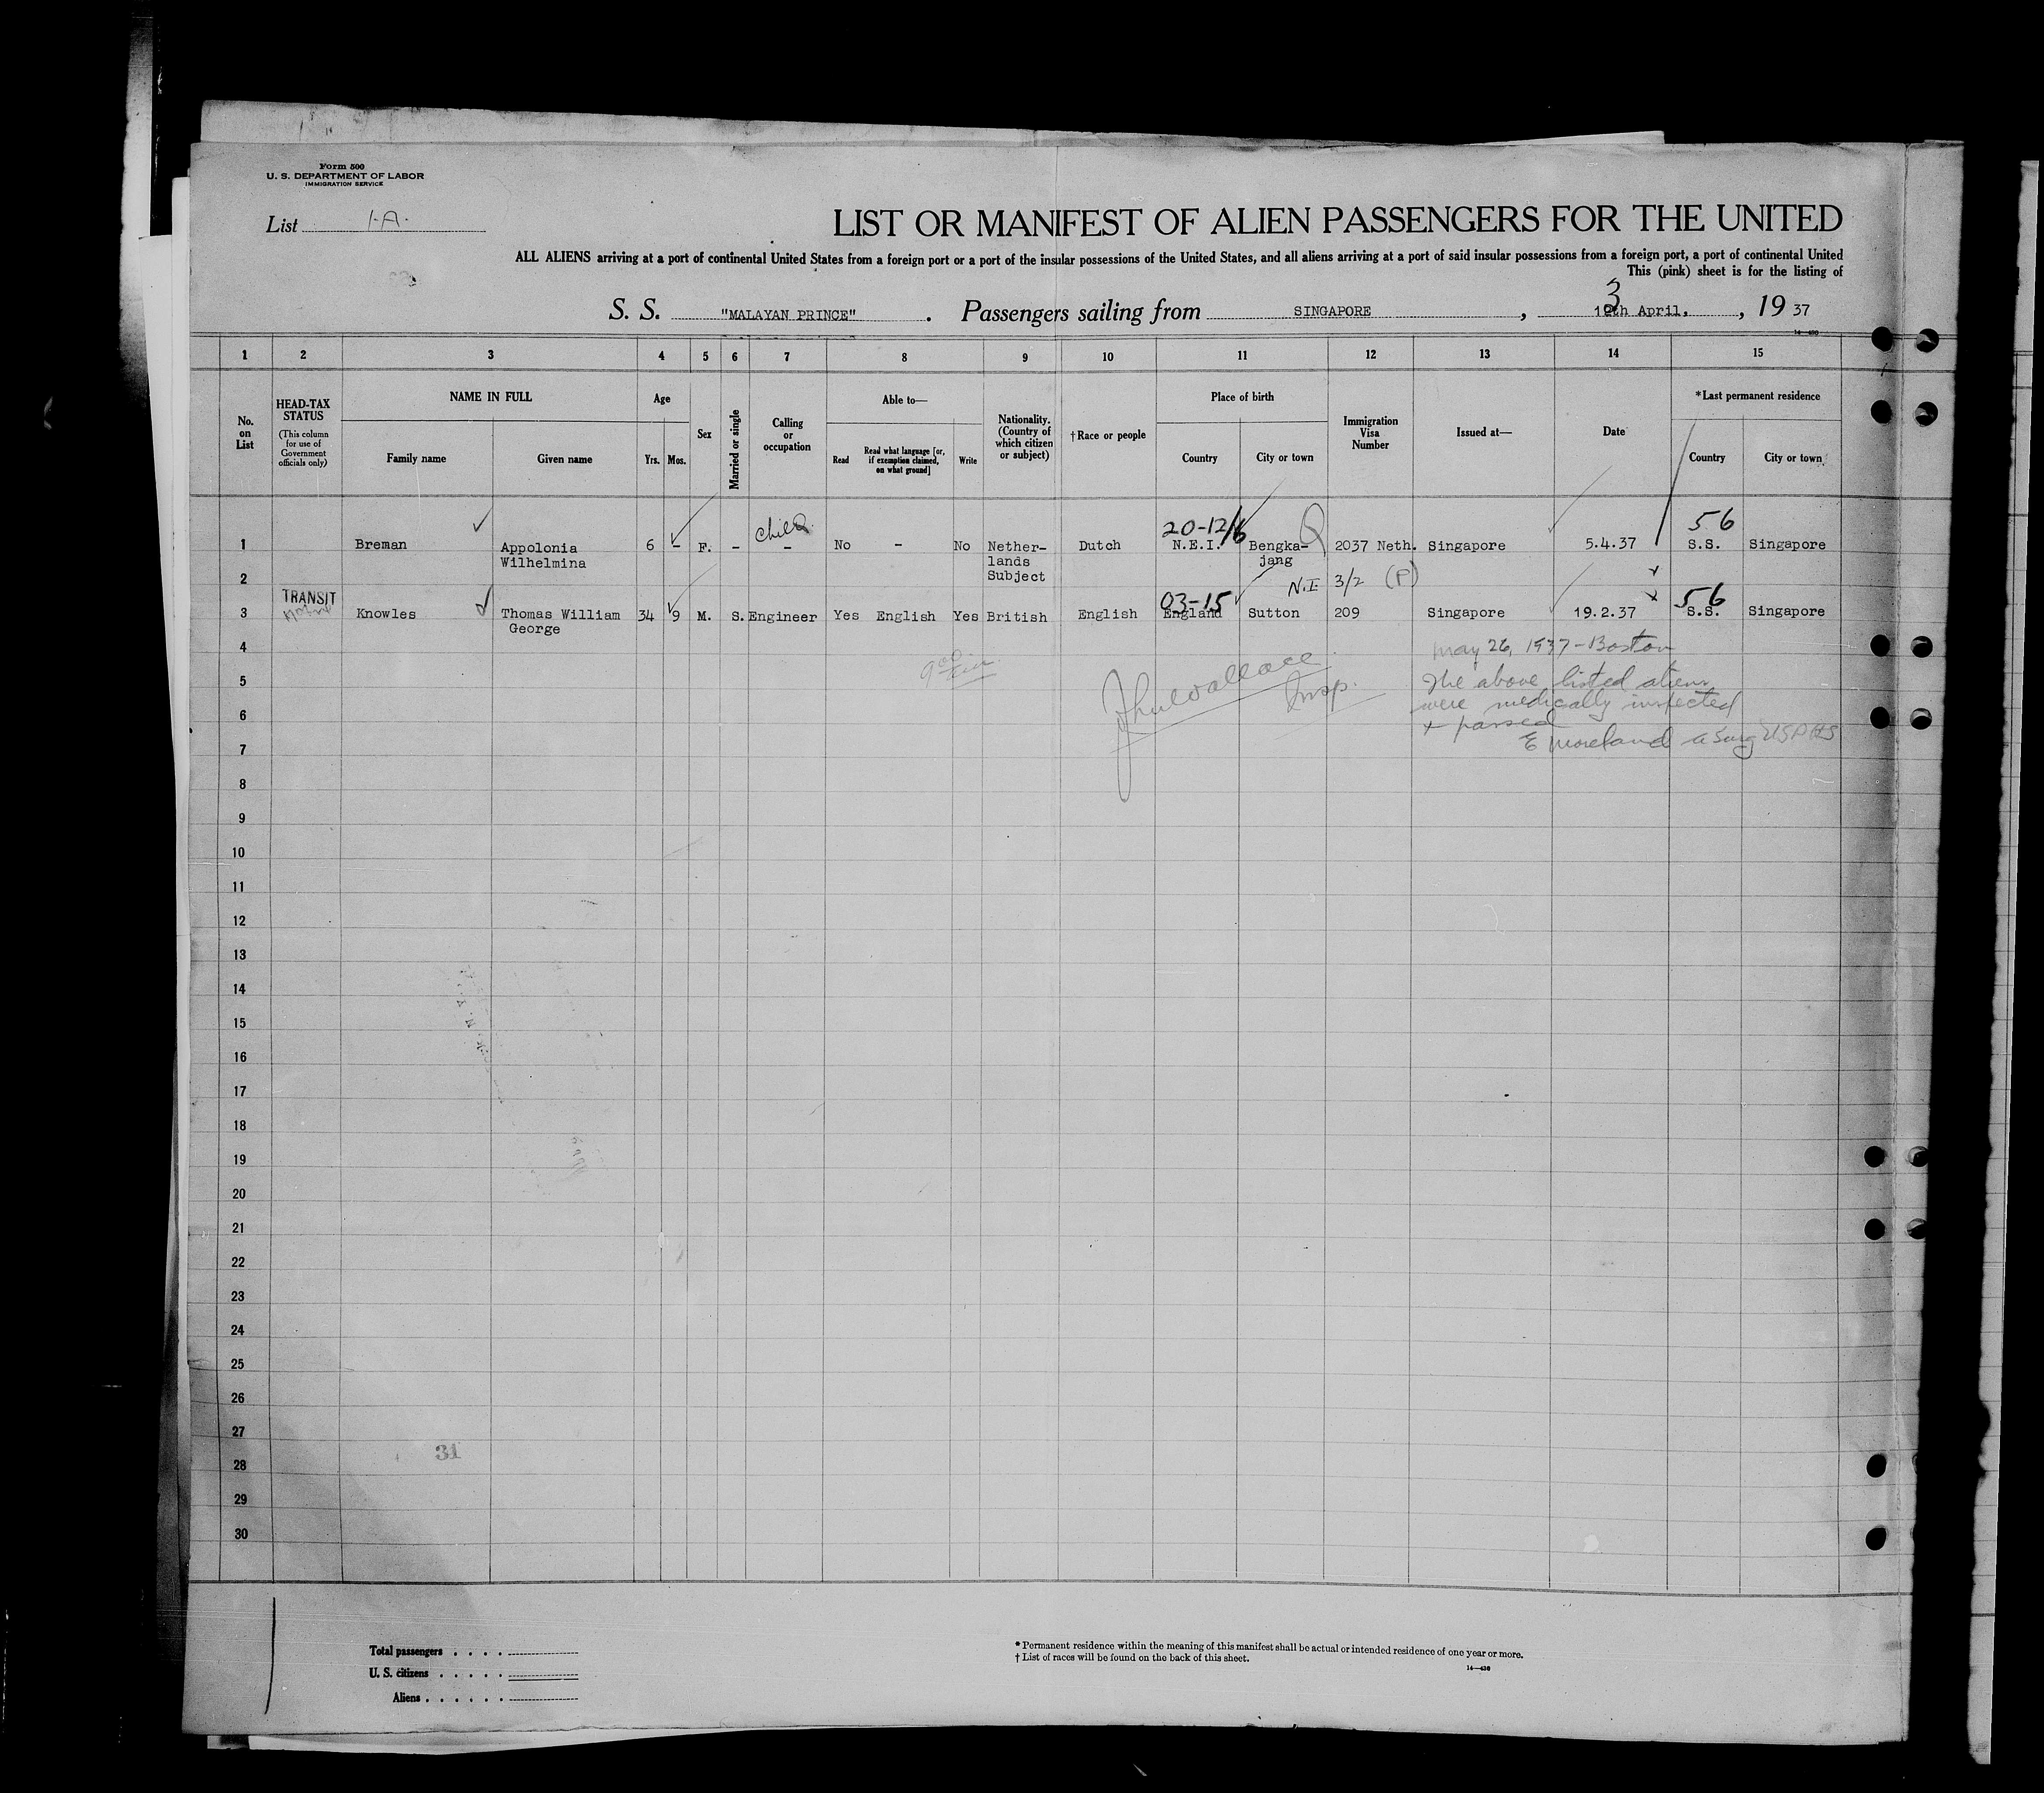 Form 500
U. S. DEPARTMENT OF LABOR
IMMIGRATION SERVICE
List 1-A.
LIST OR MANIFEST OF ALIEN PASSENGERS FOR THE UNITED
ALL ALIENS arriving at a port of continental United States from a foreign port or a port of the insular possessions of the United States, and all aliens arriving at a port of said insular possessions from a foreign port, a port of continental United
This (pink) sheet is for the listing of
S. S. "MALAYAN PRINCE". Passengers sailing from SINGAPORE, 3 th April, , 19 37
1 2 3 4 5 6 7 8 9 10 11 12 13 14 15
No. on List
HEAD-TAX STATUS
(This column for use of Government officials only)
NAME IN FULL
Family name
Given name
Age
Yrs. Mos.
Sex
Married or single
Calling or occupation
Able to—
Read
Read what language [or, if exemption claimed, on what ground]
Write
Nationality. (Country of which citizen or subject)
†Race or people
Place of birth
Country
City or town
Immigration Visa Number
Issued at—
Date
*Last permanent residence
Country
City or town
child 20-12/6 56
1 Breman Appolonia 6 - F. - - No - No Nether- Dutch N.E.I. Bengka- 2037 Neth. Singapore 5.4.37 S.S. Singapore
Wilhelmina lands jang
Subject
2 N.I. 3/2 (P)
TRANSIT 03-15 56
3 Knowles Thomas William 34 9 M. S. Engineer Yes English Yes British English England Sutton 209 Singapore 19.2.37 S.S. Singapore
George
4 May 26, 1937 - Boston
5 The above listed aliens
Insp.
6 were medically inspected
+ passed
7 E Moreland a Surg USPHS
8
9
10
11
12
13
14
15
16
17
18
19
20
21
22
23
24
25
26
27
31
28
29
30
Total passengers
U. S. citizens
Aliens
* Permanent residence within the meaning of this manifest shall be actual or intended residence of one year or more.
† List of races will be found on the back of this sheet.